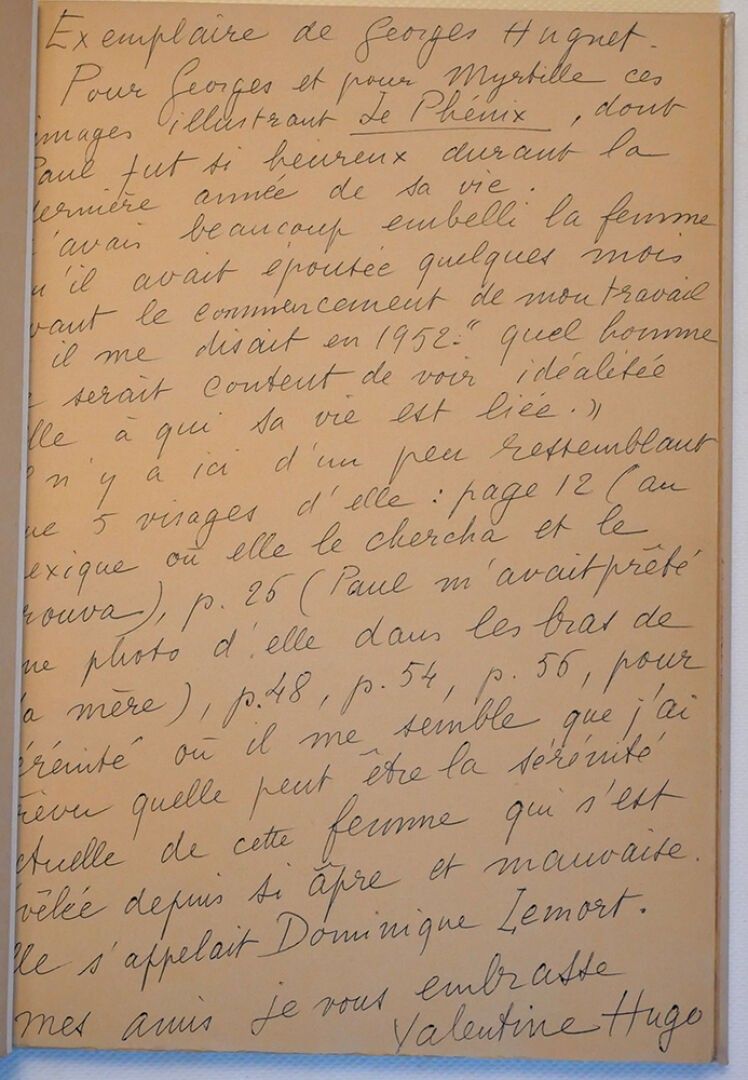 Exemplaire de Georges Hugnet.
Pour Georges et pour Myrtille ces
images illustrant Le Phénix, dont
Paul fut si heureux durant la
dernière année de sa vie.
'avais beaucoup embelli la femme
u'il avait épousée quelques mois
vant le commencement de mon travail
il me disait en 1952: "quel homme
e serait content de voir idéalisée
lle à qui sa vie est liée.»
l n'y a ici d'un peu ressemblant
ue 5 visages d'elle : page 12 (au
exique où elle le chercha et le
rouva), p. 26 (Paul m'avait prêté
ne photo d'elle dans les bras de
a mère), p. 48, p. 54, p. 56, pour
érénité où il me semble que j'ai
rêvu quelle peut être la sérénité
ctuelle de cette femme qui s'est
vêlée depuis si âpre et mauvaise.
lle s'appelait Dominique Lemort.
mes amis je vous embrasse
Valentine Hugo